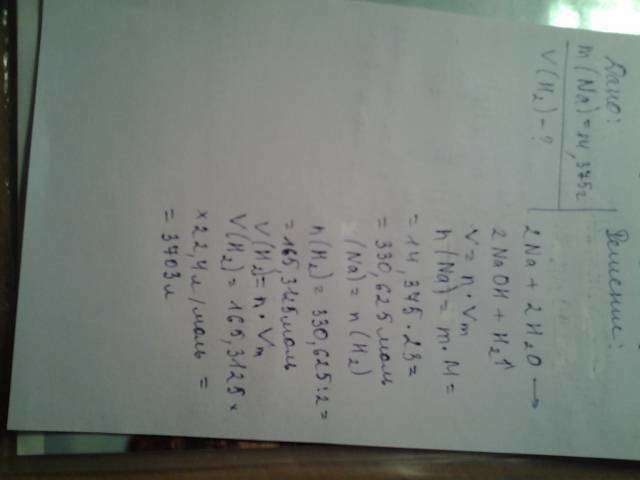 Дано:
m(Na)=14,375г
V(H₂)-?
Решение:
2Na + 2H₂O →
2NaOH + H₂↑
V = n · Vm
n(Na) = m · M =
= 14,375 · 23 =
= 330,625 моль
(Na) = n(H₂)
n(H₂) = 330,625:2 =
= 165,3125 моль
V(H₂) = n · Vm
V(H₂) = 165,3125 ×
× 22,4 л/моль =
= 3703 л